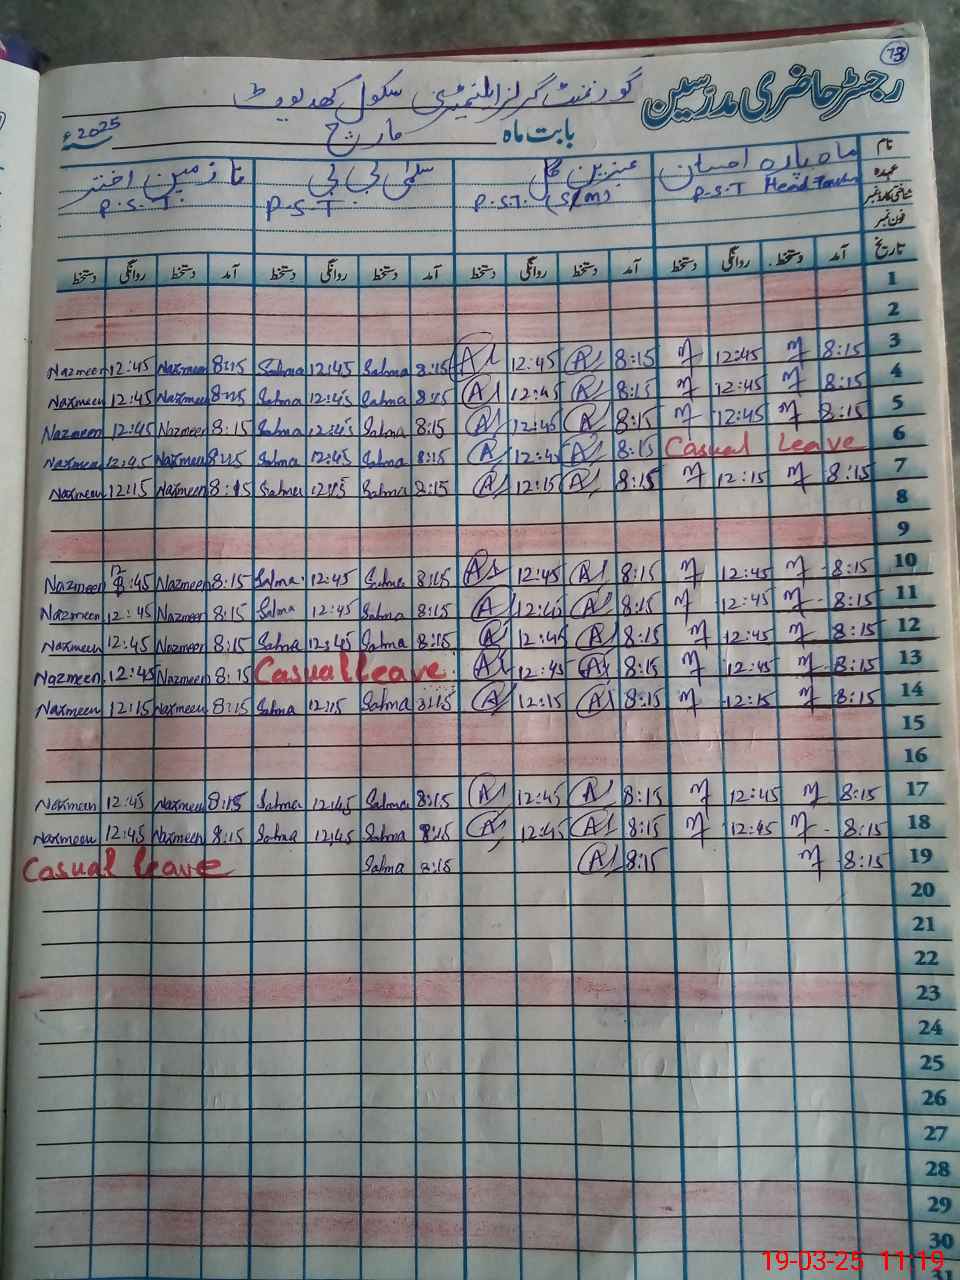 73
رجسٹر حاضری مدرسین
گورنمنٹ گرلز ایلیمنٹری سکول
بابت ماہ مارچ 2025ء
نام ماہ پارہ احسان عنبرین گل سلمیٰ بی بی نازمین اختر
عہدہ P.S.T Head Teacher P.S.T. (S/m) P.S.T P.S.T.
شناختی کارڈ نمبر
فون نمبر
تاریخ آمد دستخط روانگی دستخط آمد دستخط روانگی دستخط آمد دستخط روانگی دستخط آمد دستخط روانگی دستخط
1
2
Nazmeen 12:45 Nazmeen 8:15 Salma 12:45 Salma 8:15 A 12:45 A 8:15 M 12:45 M 8:15 3
Nazmeen 12:45 Nazmeen 8:15 Salma 12:45 Salma 8:15 A 12:45 A 8:15 M 12:45 M 8:15 4
Nazmeen 12:45 Nazmeen 8:15 Salma 12:45 Salma 8:15 A 12:45 A 8:15 M 12:45 M 8:15 5
Nazmeen 12:45 Nazmeen 8:15 Salma 12:45 Salma 8:15 A 12:45 A 8:15 Casual leave 6
Nazmeen 12:15 Nazmeen 8:15 Salma 12:15 Salma 8:15 A 12:15 A 8:15 M 12:15 M 8:15 7
8
9
Nazmeen 12:45 Nazmeen 8:15 Salma 12:45 Salma 8:15 A 12:45 A 8:15 M 12:45 M 8:15 10
Nazmeen 12:45 Nazmeen 8:15 Salma 12:45 Salma 8:15 A 12:45 A 8:15 M 12:45 M 8:15 11
Nazmeen 12:45 Nazmeen 8:15 Salma 12:45 Salma 8:15 A 12:45 A 8:15 M 12:45 M 8:15 12
Nazmeen 12:45 Nazmeen 8:15 Casual leave A 12:45 A 8:15 M 12:45 M 8:15 13
Nazmeen 12:15 Nazmeen 8:15 Salma 12:15 Salma 8:15 A 12:15 A 8:15 M 12:15 M 8:15 14
15
16
Nazmeen 12:45 Nazmeen 8:15 Salma 12:45 Salma 8:15 A 12:45 A 8:15 M 12:45 M 8:15 17
Nazmeen 12:45 Nazmeen 8:15 Salma 12:45 Salma 8:15 A 12:45 A 8:15 M 12:45 M 8:15 18
Casual leave Salma 8:15 A 8:15 M 8:15 19
20
21
22
23
24
25
26
27
28
29
30
31
19-03-25 11:19